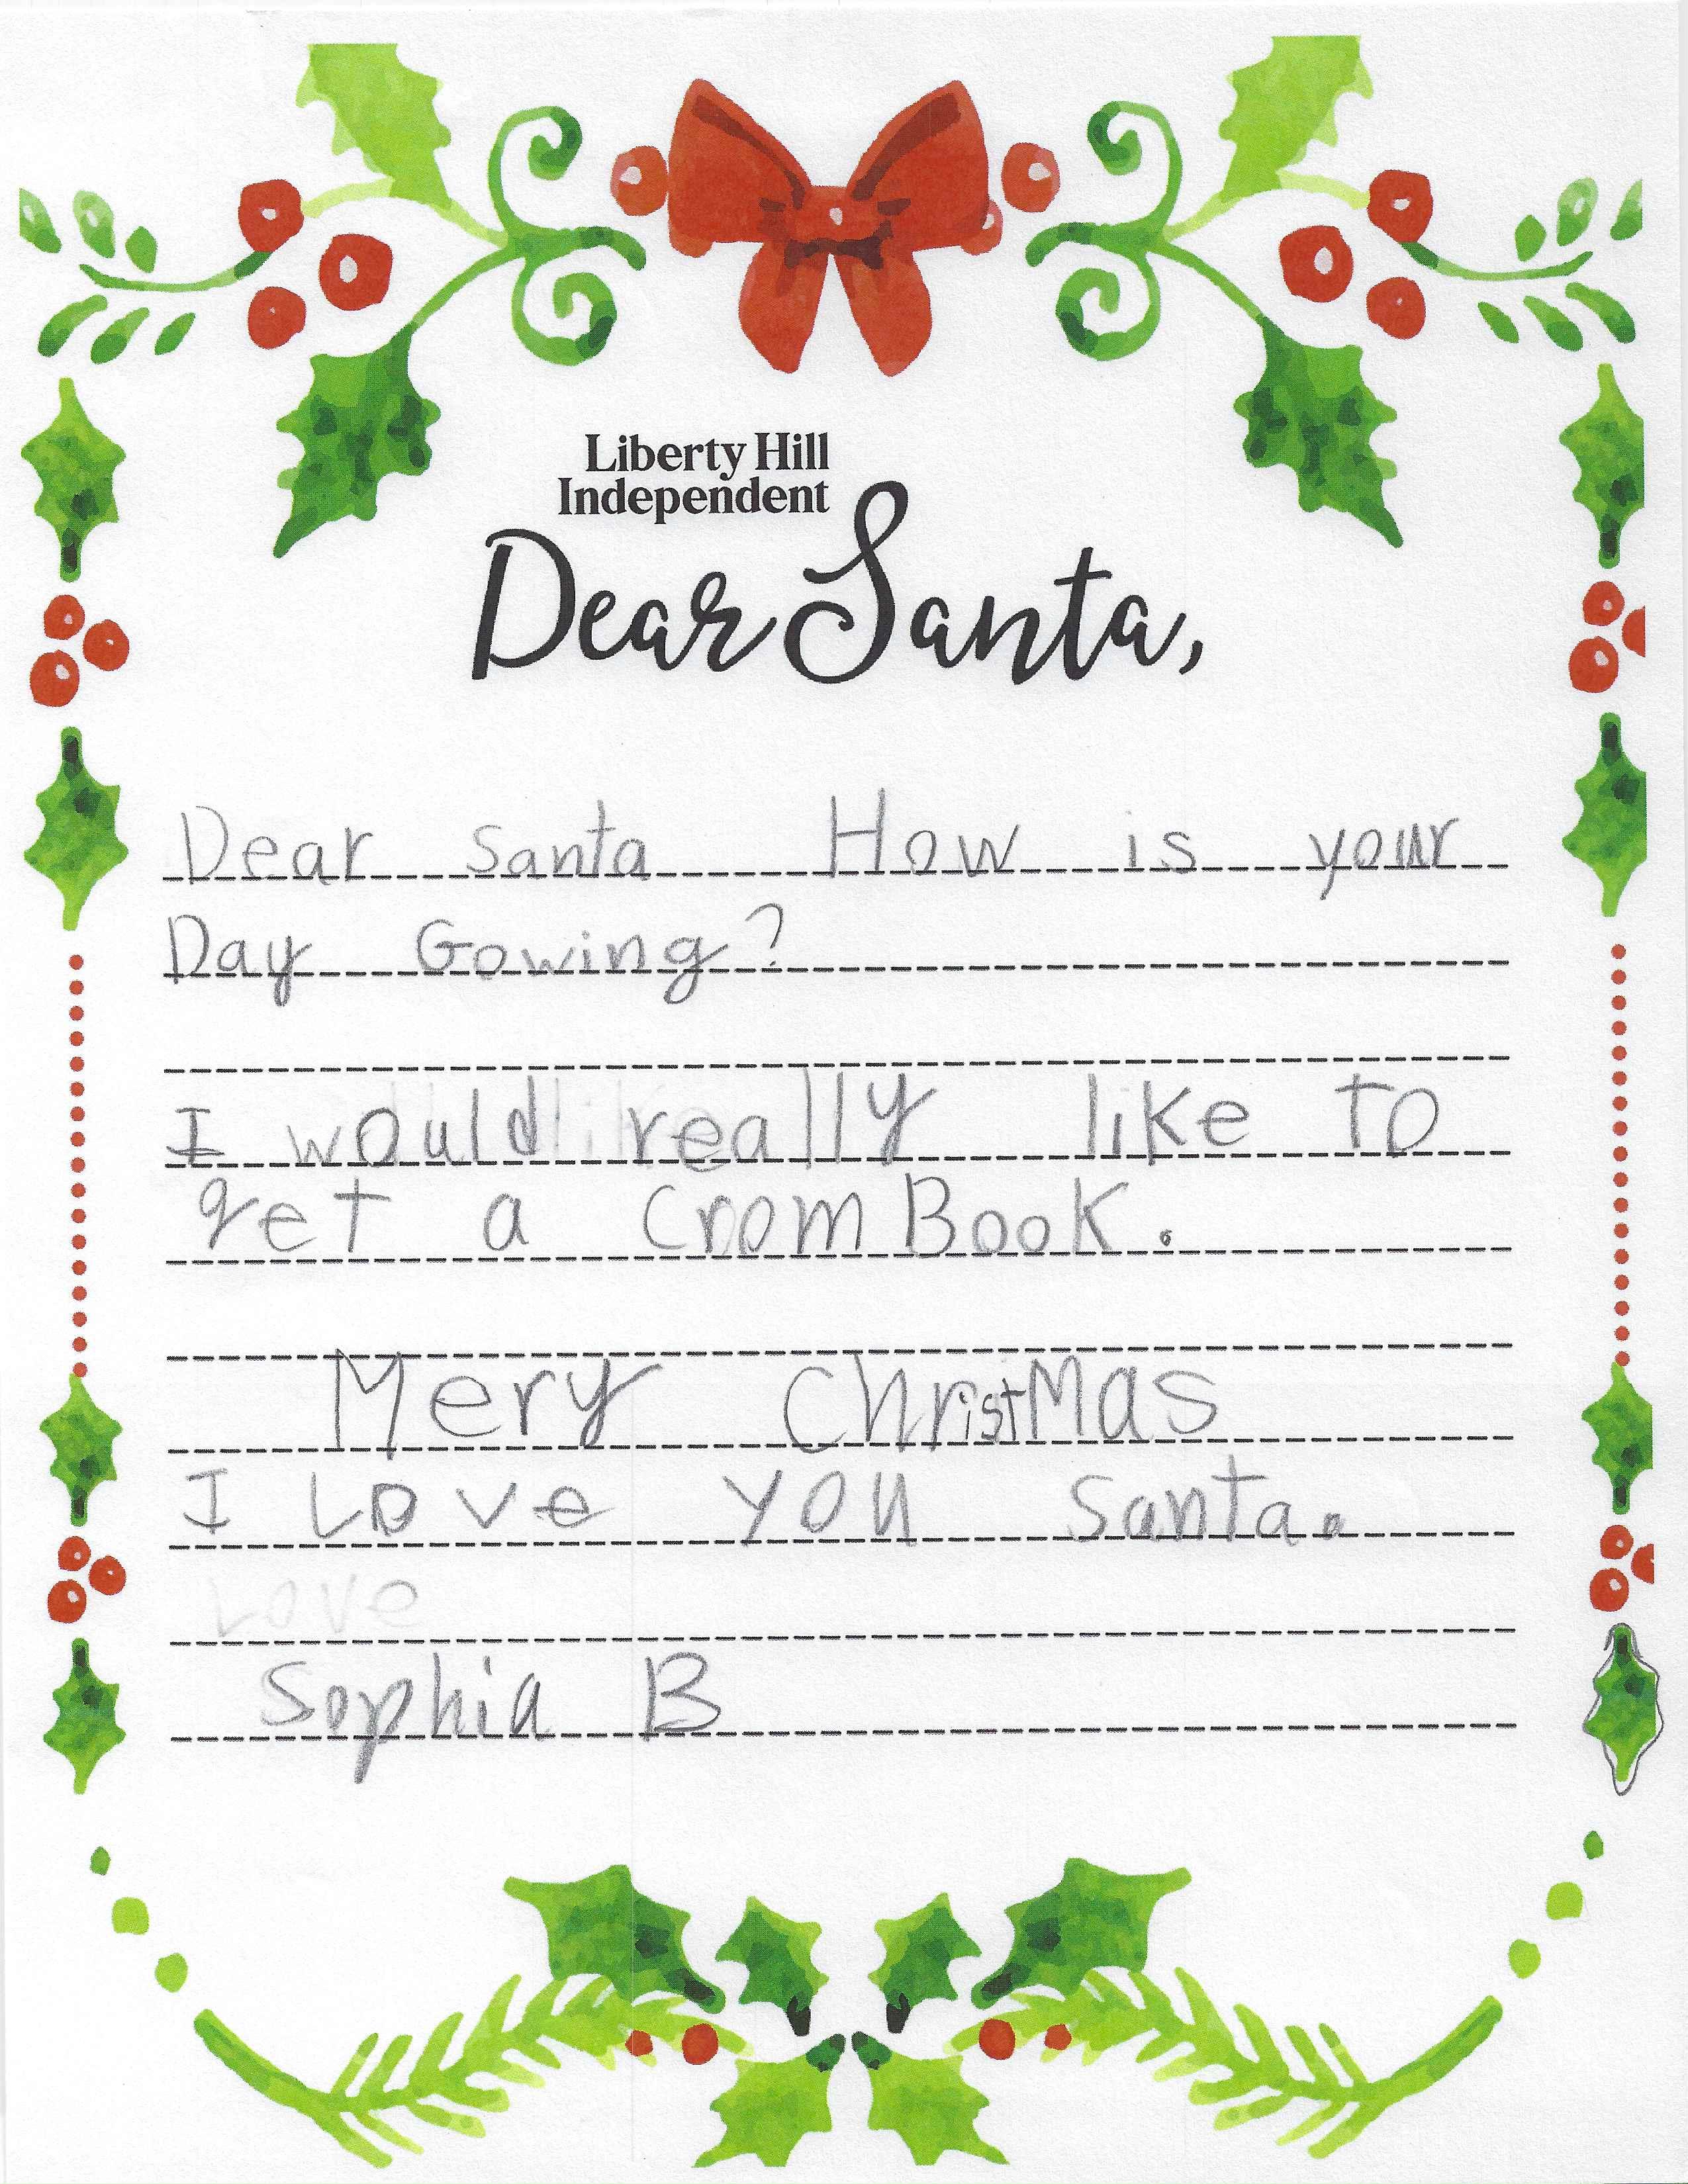 Liberty Hill
Independent
Dear Santa,
Dear santa How is your
Day Gowing?
I would really like to
get a cromBook.
Mery christMas
I Love you Santa.
Love
Sophia B